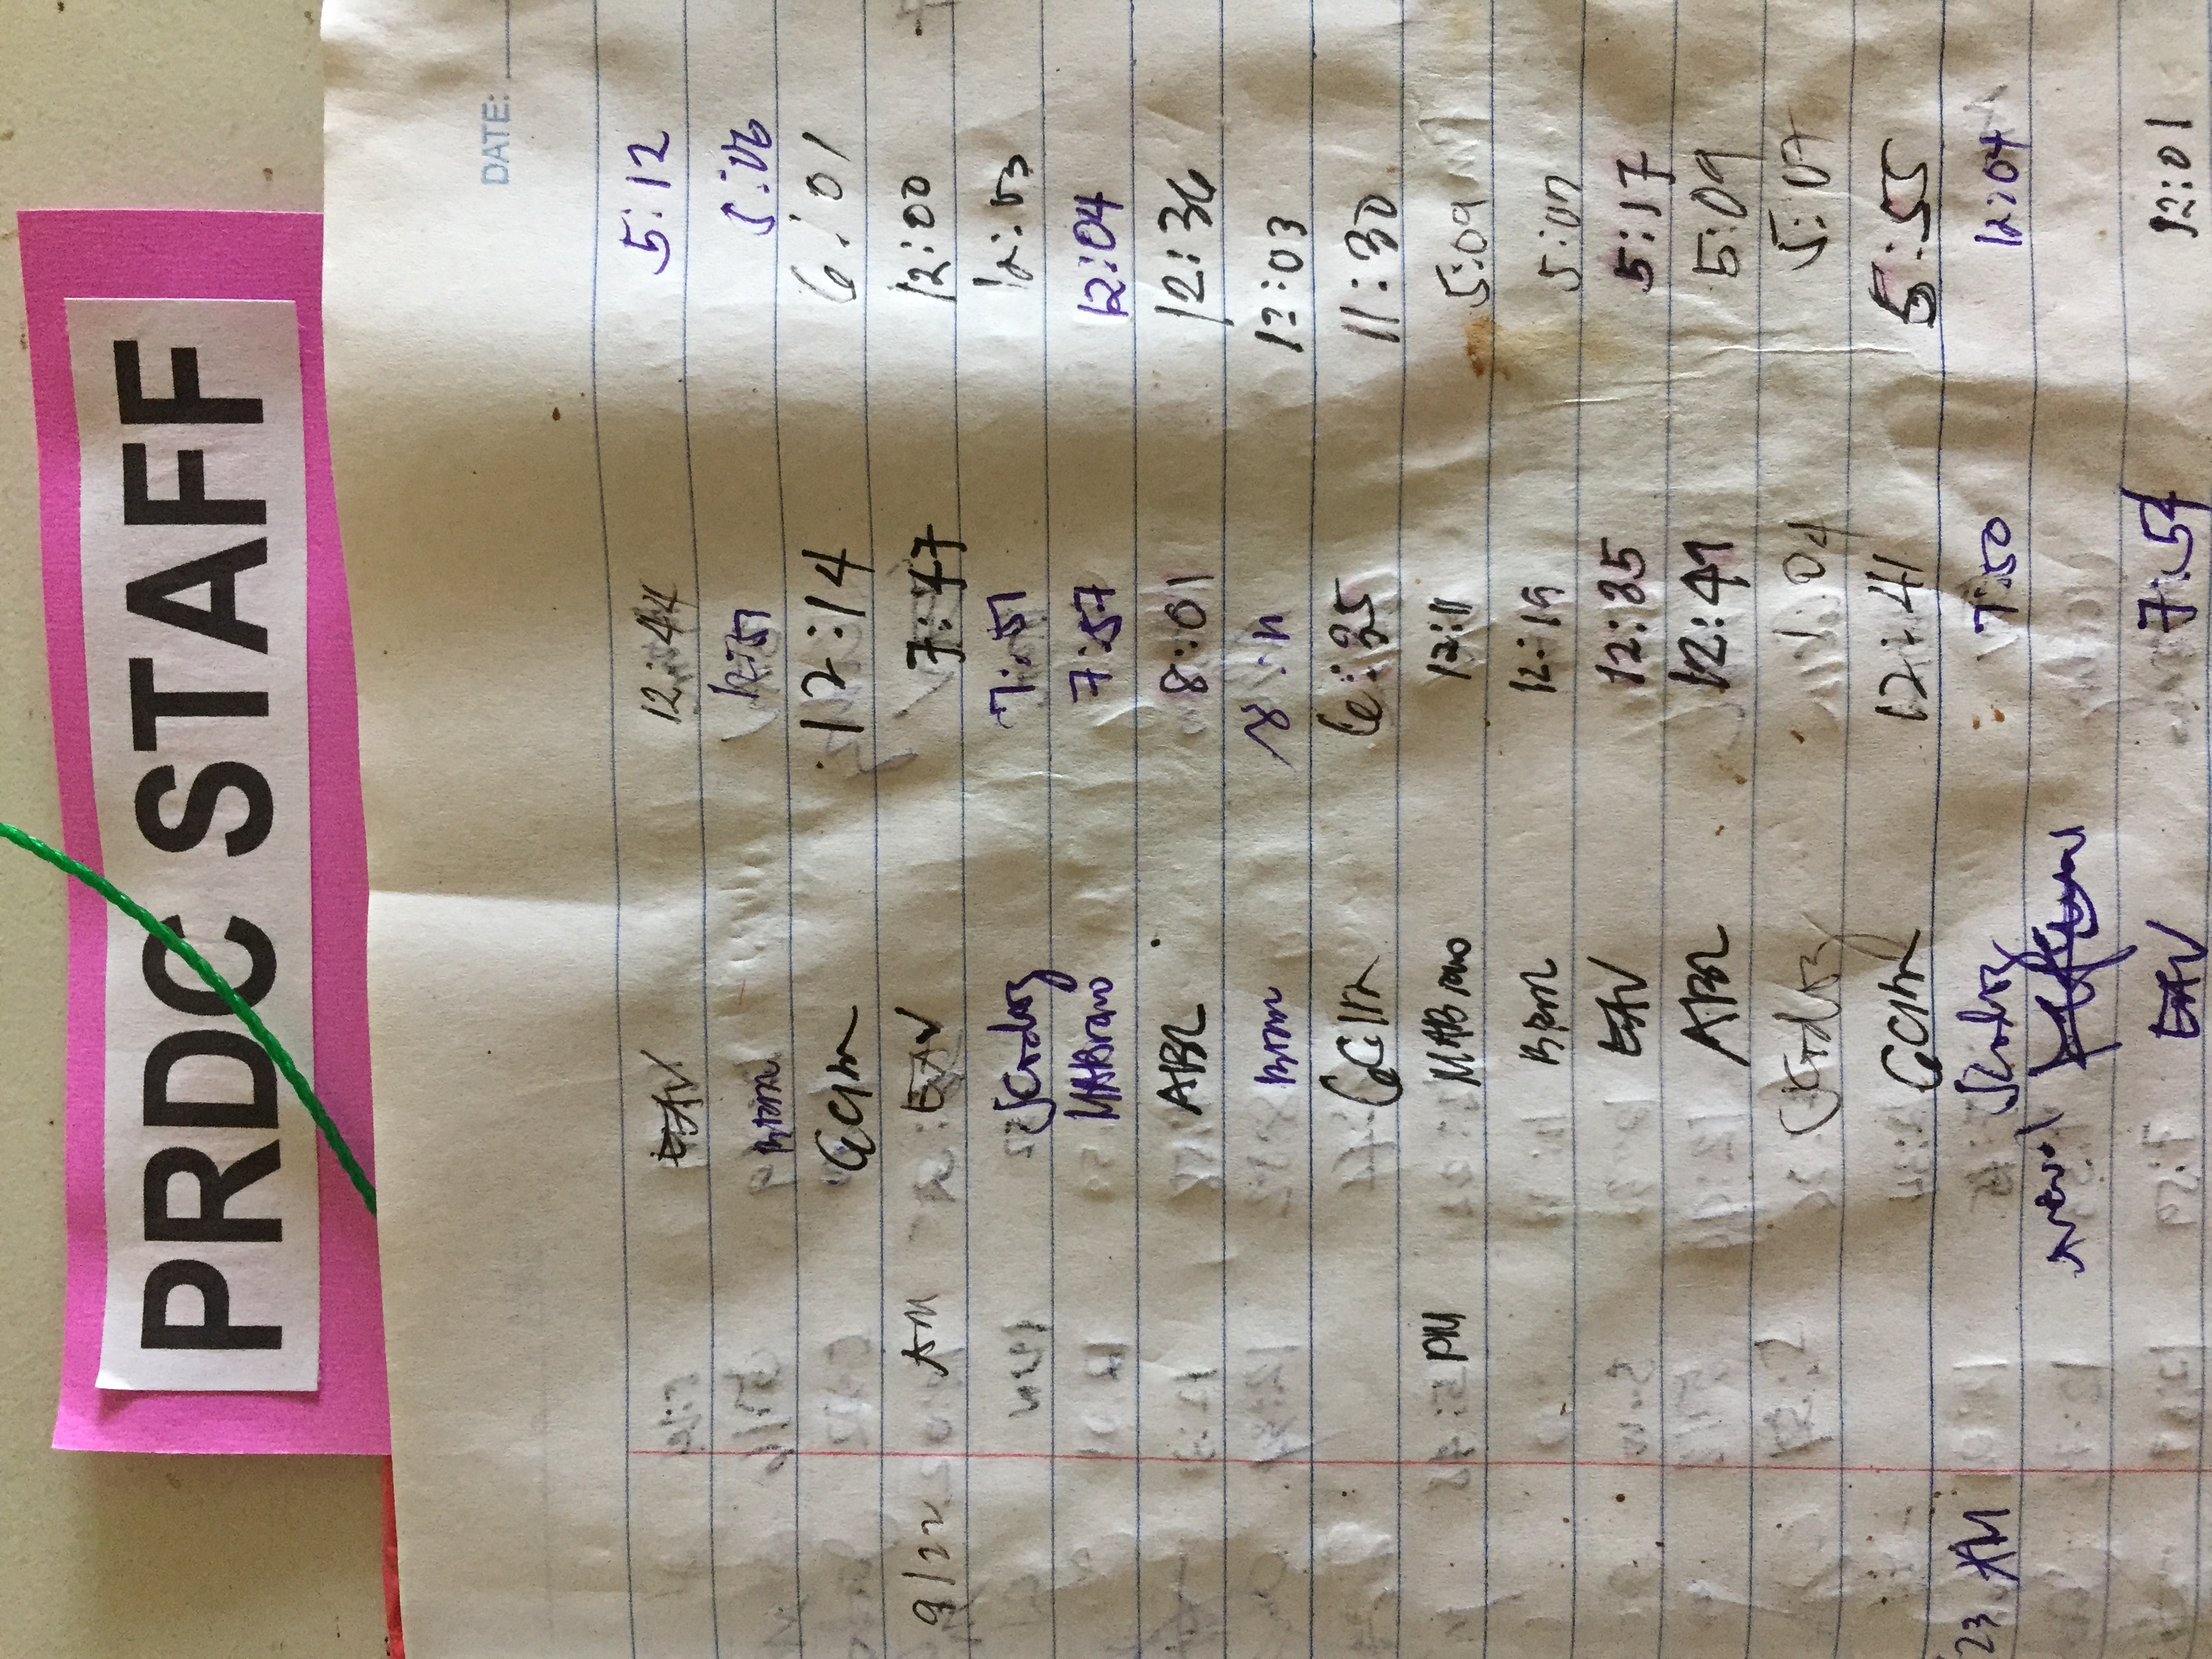 PRDC STAFF
DATE:
EAV 12:44 5:12
5:16
GClln 12:14 6:01
9/22 AM EAV 7:47 12:00
7:51 12:53
MABrano 7:57 12:04
ABL 8:01 12:36
8:11 12:03
GClln 6:35 11:30
PM MABrano 12:11 5:09
12:19 5:07
EAV 12:35 5:17
ABL 12:41 5:09
1:04 5:07
GClln 12:41 5:55
23 AM 7:50 12:04
EAV 7:54 12:01